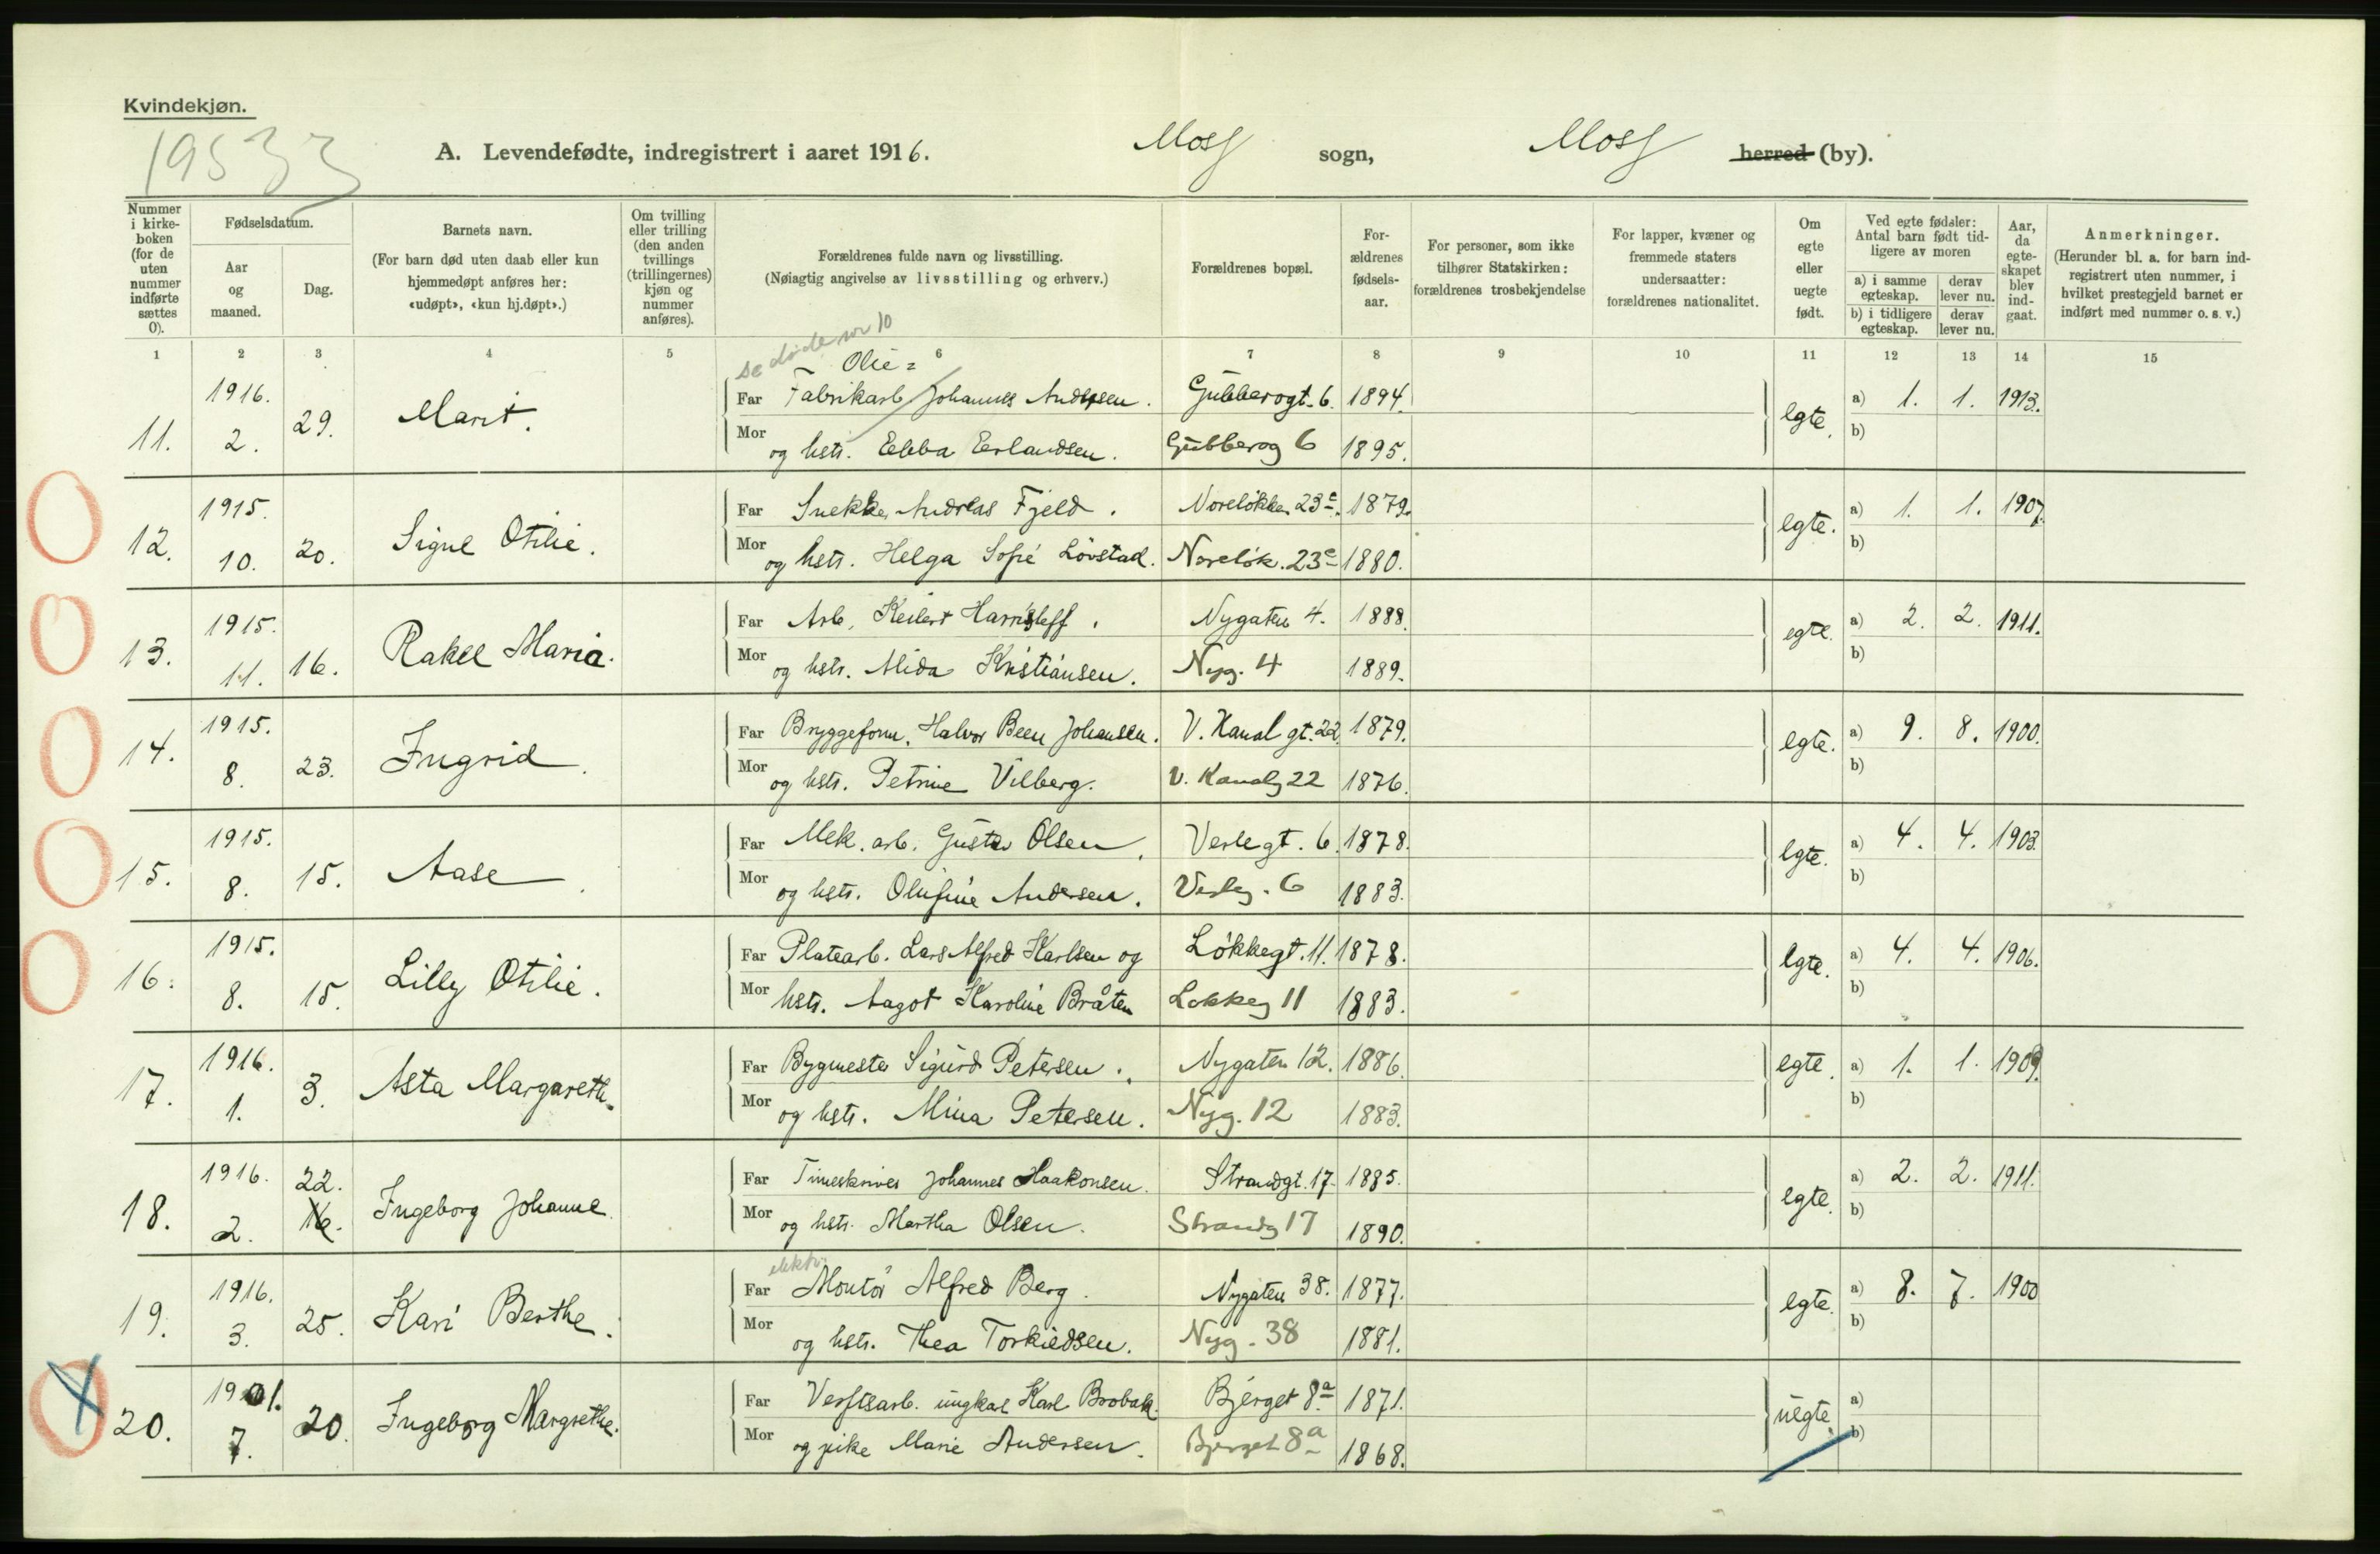 Kvindekjøn.
19533
A. Levendefødte, indregistrert i aaret 1916. Moss sogn, Moss herred (by).
Nummer i kirkeboken (for de uten nummer indførte sættes 0).
Fødselsdatum.
Aar og maaned.
Dag.
Barnets navn.
(For barn død uten daab eller kun hjemmedøpt anføres her: «udøpt», «kun hj.døpt».)
Om tvilling eller trilling (den anden tvillings (trillingernes) kjøn og nummer anføres).
Forældrenes fulde navn og livsstilling.
(Nøiagtig angivelse av livsstilling og erhverv.)
Forældrenes bopæl.
For-ældrenes fødsels-aar.
For personer, som ikke tilhører Statskirken: forældrenes trosbekjendelse
For lapper, kvæner og fremmede staters undersaatter: forældrenes nationalitet.
Om egte eller uegte født.
Ved egte fødsler: Antal barn født tid-ligere av moren
a) i samme egteskap.
derav lever nu.
b) i tidligere egteskap.
derav lever nu.
Aar, da egte-skapet blev ind-gaat.
Anmerkninger.
(Herunder bl. a. for barn ind-registrert uten nummer, i hvilket prestegjeld barnet er indført med nummer o. s. v.)
1 2 3 4 5 6 7 8 9 10 11 12 13 14 15
se døde nr 10
Olie=
11. 1916. 2. 29. Marit.
Far Fabrikarb Johannes Andersen. Gubberogt. 6. 1894. egte. a) 1. 1. 1913.
Mor og hstr. Ebba Erlandsen. Gubberog 6 1895. b)
12. 1915. 10. 20. Signe Otilie.
Far Snekker Andreas Fjeld. Noreløkken 23c. 1879. egte. a) 1. 1. 1907.
Mor og hstr. Helga Sofie Løvstad. Noreløk. 23c 1880. b)
13. 1915. 11. 16. Rakel Maria.
Far Arb. Keilert Harrisleff. Nygaten 4. 1888. egte. a) 2. 2. 1911.
Mor og hstr. Alida Kristiansen. Nyg. 4 1889. b)
14. 1915. 8. 23. Ingrid.
Far Bryggeform. Halvor Been Johansen. V. Kanal gt. 22. 1879. egte. a) 9. 8. 1900.
Mor og hstr. Petrine Vilberg. V. Kanalg 22 1876. b)
15. 1915. 8. 15. Aase.
Far Mek. arb. Gustav Olsen. Verlegt. 6. 1878. egte. a) 4. 4. 1903.
Mor og hstr. Olufine Andersen. Verleg. 6 1883. b)
16. 1915. 8. 15. Lilly Otilie.
Far Platearb. Lars Alfred Karlsen og Løkkegt. 11. 1878. egte. a) 4. 4. 1906.
Mor hstr. Aagot Karoline Bråten Løkkeg 11 1883. b)
17. 1916. 1. 3. Asta Margareth.
Far Bygmester Sigurd Petersen. Nygaten 12. 1886. egte. a) 1. 1. 1909.
Mor og hstr. Mina Petersen. Nyg. 12 1883. b)
18. 1916. 2. 22. 16. Ingeborg Johanne.
Far Timeskriver Johannes Haakonsen. Strandgt. 17. 1885. egte. a) 2. 2. 1911.
Mor og hstr. Martha Olsen. Strandg 17 1890. b)
elektr.
19. 1916. 3. 25. Kari Berthe.
Far Montør Alfred Berg. Nygaten 38. 1877. egte. a) 8. 7. 1900
Mor og hstr. Thea Torkildsen. Nyg. 38 1881. b)
20. 1901. 7. 20. Ingeborg Margrethe.
Far Verftsarb. ungkar Karl Brobak. Bjerget 8a 1871. uegte. a)
Mor og pike Marie Andersen. Bjerget 8a 1868. b)